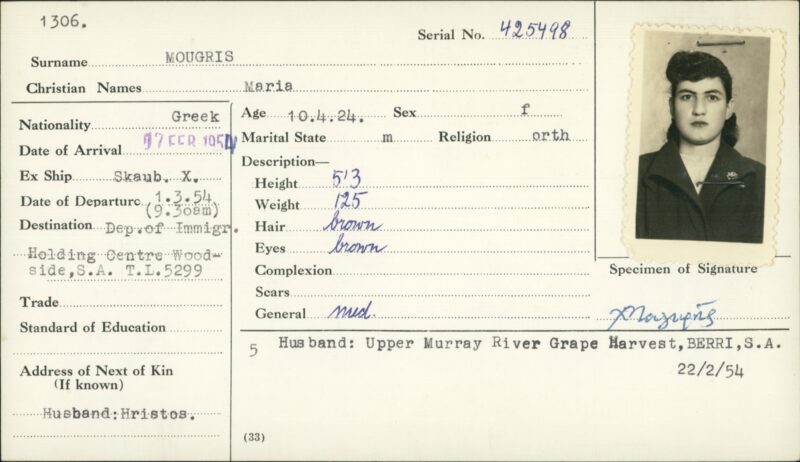 1306.
Serial No. 425498
Surname MOUGRIS
Christian Names Maria
Nationality Greek
Date of Arrival 17 FEB 1954
Ex Ship Skaub. X.
Date of Departure 1.3.54.
(9.30am)
Destination Dep.of Immigr.
Holding Centre Wood-
side,S.A. T.L.5299
Trade
Standard of Education
Address of Next of Kin
(If known)
Husband:Hristos.
Age 10.4.24. Sex f
Marital State m Religion orth
Description—
Height 5'3
Weight 125
Hair brown
Eyes brown
Complexion
Scars
General med.
Specimen of Signature
5 Husband: Upper Murray River Grape Harvest,BERRI,S.A.
22/2/54
(33)